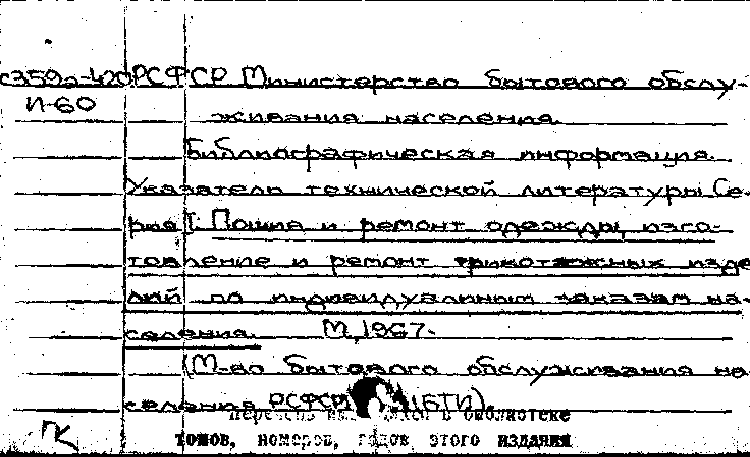 с359а-420 РСФСР Министерство бытового обслу-
И-60 живания населения.
Библиографическая информация.
Указатель технической литературы Се-
рия I. Пошив и ремонт одежды, изго-
товление и ремонт трикотажных изде
лий по индивидуальным заказам на-
селения. М., 1967-
(М-во бытового обслуживания на
селения РСФСР (БТИ).
Перечень в библиотеке
ГК томов, номеров, годов этого издания